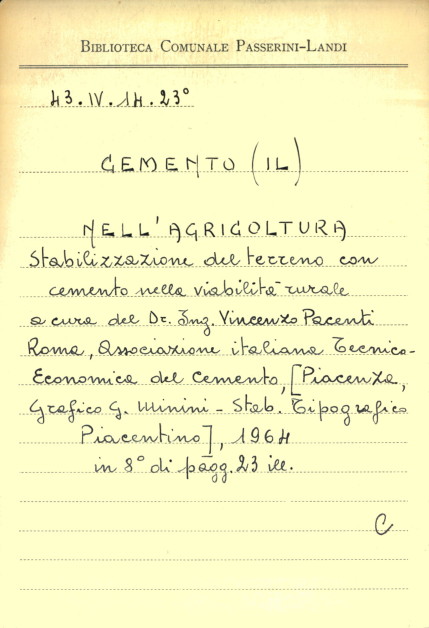 BIBLIOTECA COMUNALE PASSERINI-LANDI
43.IV.14.23°
CEMENTO (IL)
NELL'AGRICOLTURA
Stabilizzazione del terreno con
cemento nella viabilità rurale
a cura del Dr. Ing. Vincenzo Pacenti
Roma, Associazione italiana Tecnico-
Economica del Cemento, [Piacenza,
Grafico G. Minini - Stab. Tipografico
Piacentino], 1964
in 8° di pagg. 23 ill.
C